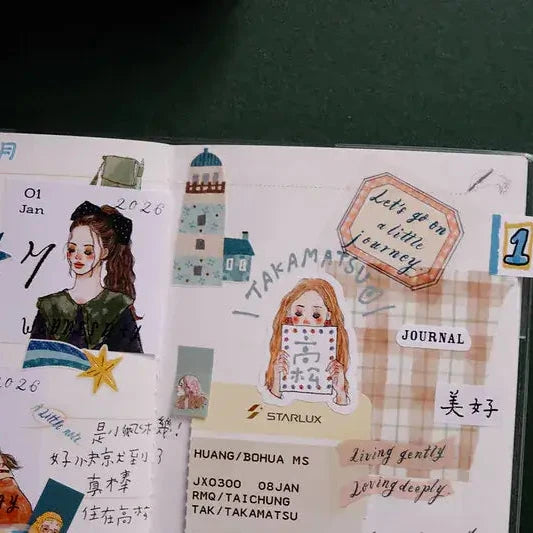 月
01
Jan
2026
7
Wednesday
2026
A little note
真樓
住在高松
TAKAMATSU
高松
Let's go on
a little
journey.
1
JOURNAL
美好
STARLUX
HUANG/BOHUA MS
JX0300 08JAN
RMQ/TAICHUNG
TAK/TAKAMATSU
Living gently
Loving deeply.